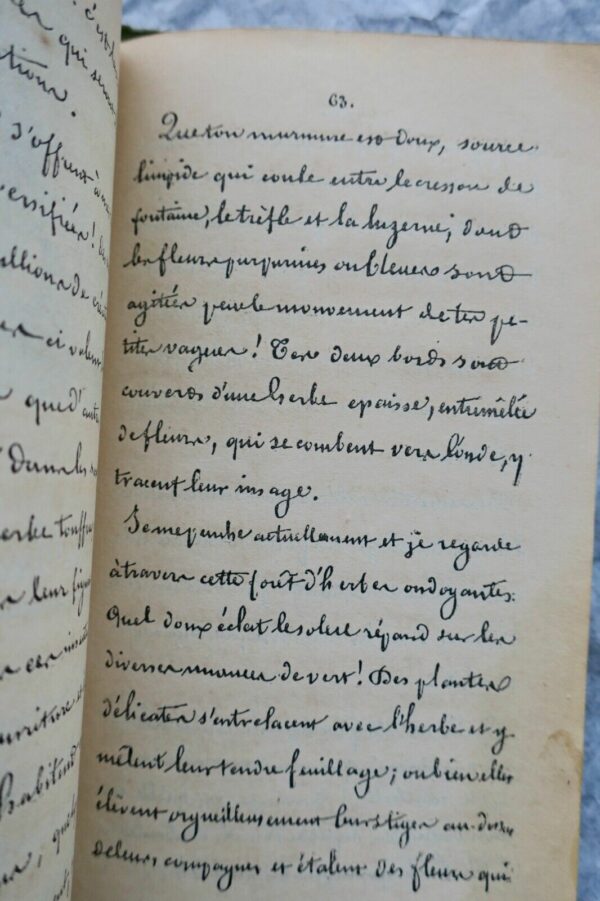 c'est
qui
tions.
s'offrent à
versifiées!
llions de
ci
que d'
Dans les
touffu
leur
ces
63.
Que ton murmure est doux, source
limpide qui coule entre le cresson de
fontaine, le trèfle et la luzerne, dont
les fleurs purpurines ou bleues sont
agitées par le mouvement de tes pe-
tites vagues! Tes deux bords sont
couverts d'une herbe epaisse, entremêlée
de fleurs, qui se combent vers l'onde, y
tracent leur image.
Je me penche actuellement et je regarde
à travers cette forêt d'herbes ondoyantes.
Quel doux éclat le soleil répand sur les
diverses nuances de vert! Des plantes
délicates s'entrelacent avec l'herbe et y
mêlent leur tendre feuillage; ou bien elles
élèvent orgueilleusement leurs tiges au-dessus
de leurs compagnes et étalent des fleurs qui